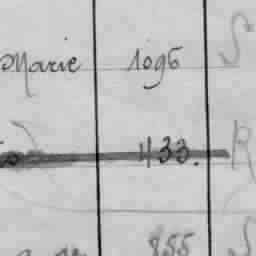 Marie 1096 S
433. R
855 S